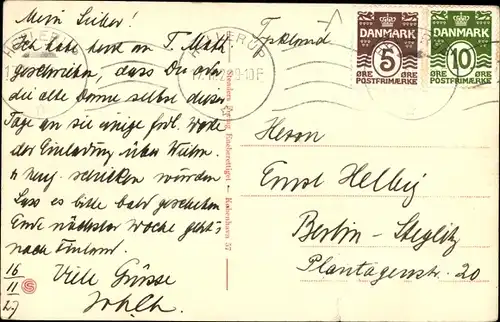 Mein Lieber!
Ich habe heute an T. Math.
geschrieben, dass Du oder
die alte Dame selbst dieser
Tage an sie einige frdl. Worte
der Einladung über Weihn.
u. Neuj. schicken würden
Lass es bitte bald geschehen
Ende nächster Woche geht's
nach Finland.
Viele Grüsse
16
11
27
HELLERUP
HELLERUP
Stenders Forlag Eneberettiget — København 57
DANMARK
5
ØRE ØRE
POSTFRIMÆRKE
DANMARK
10
ØRE ØRE
POSTFRIMÆRKE
Tyskland
Herrn
Ernst Helbig
Berlin - Steglitz
Plantagenstr. 20